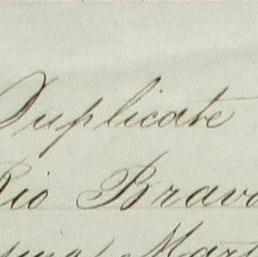 Duplicate
Rio Bravo